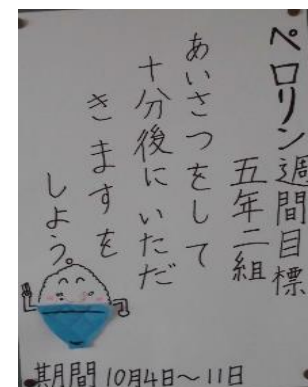 ペロリン週間目標
五年二組
あいさつをして
十分後にいただ
きますを
しよう。
期間 10月4日～11日